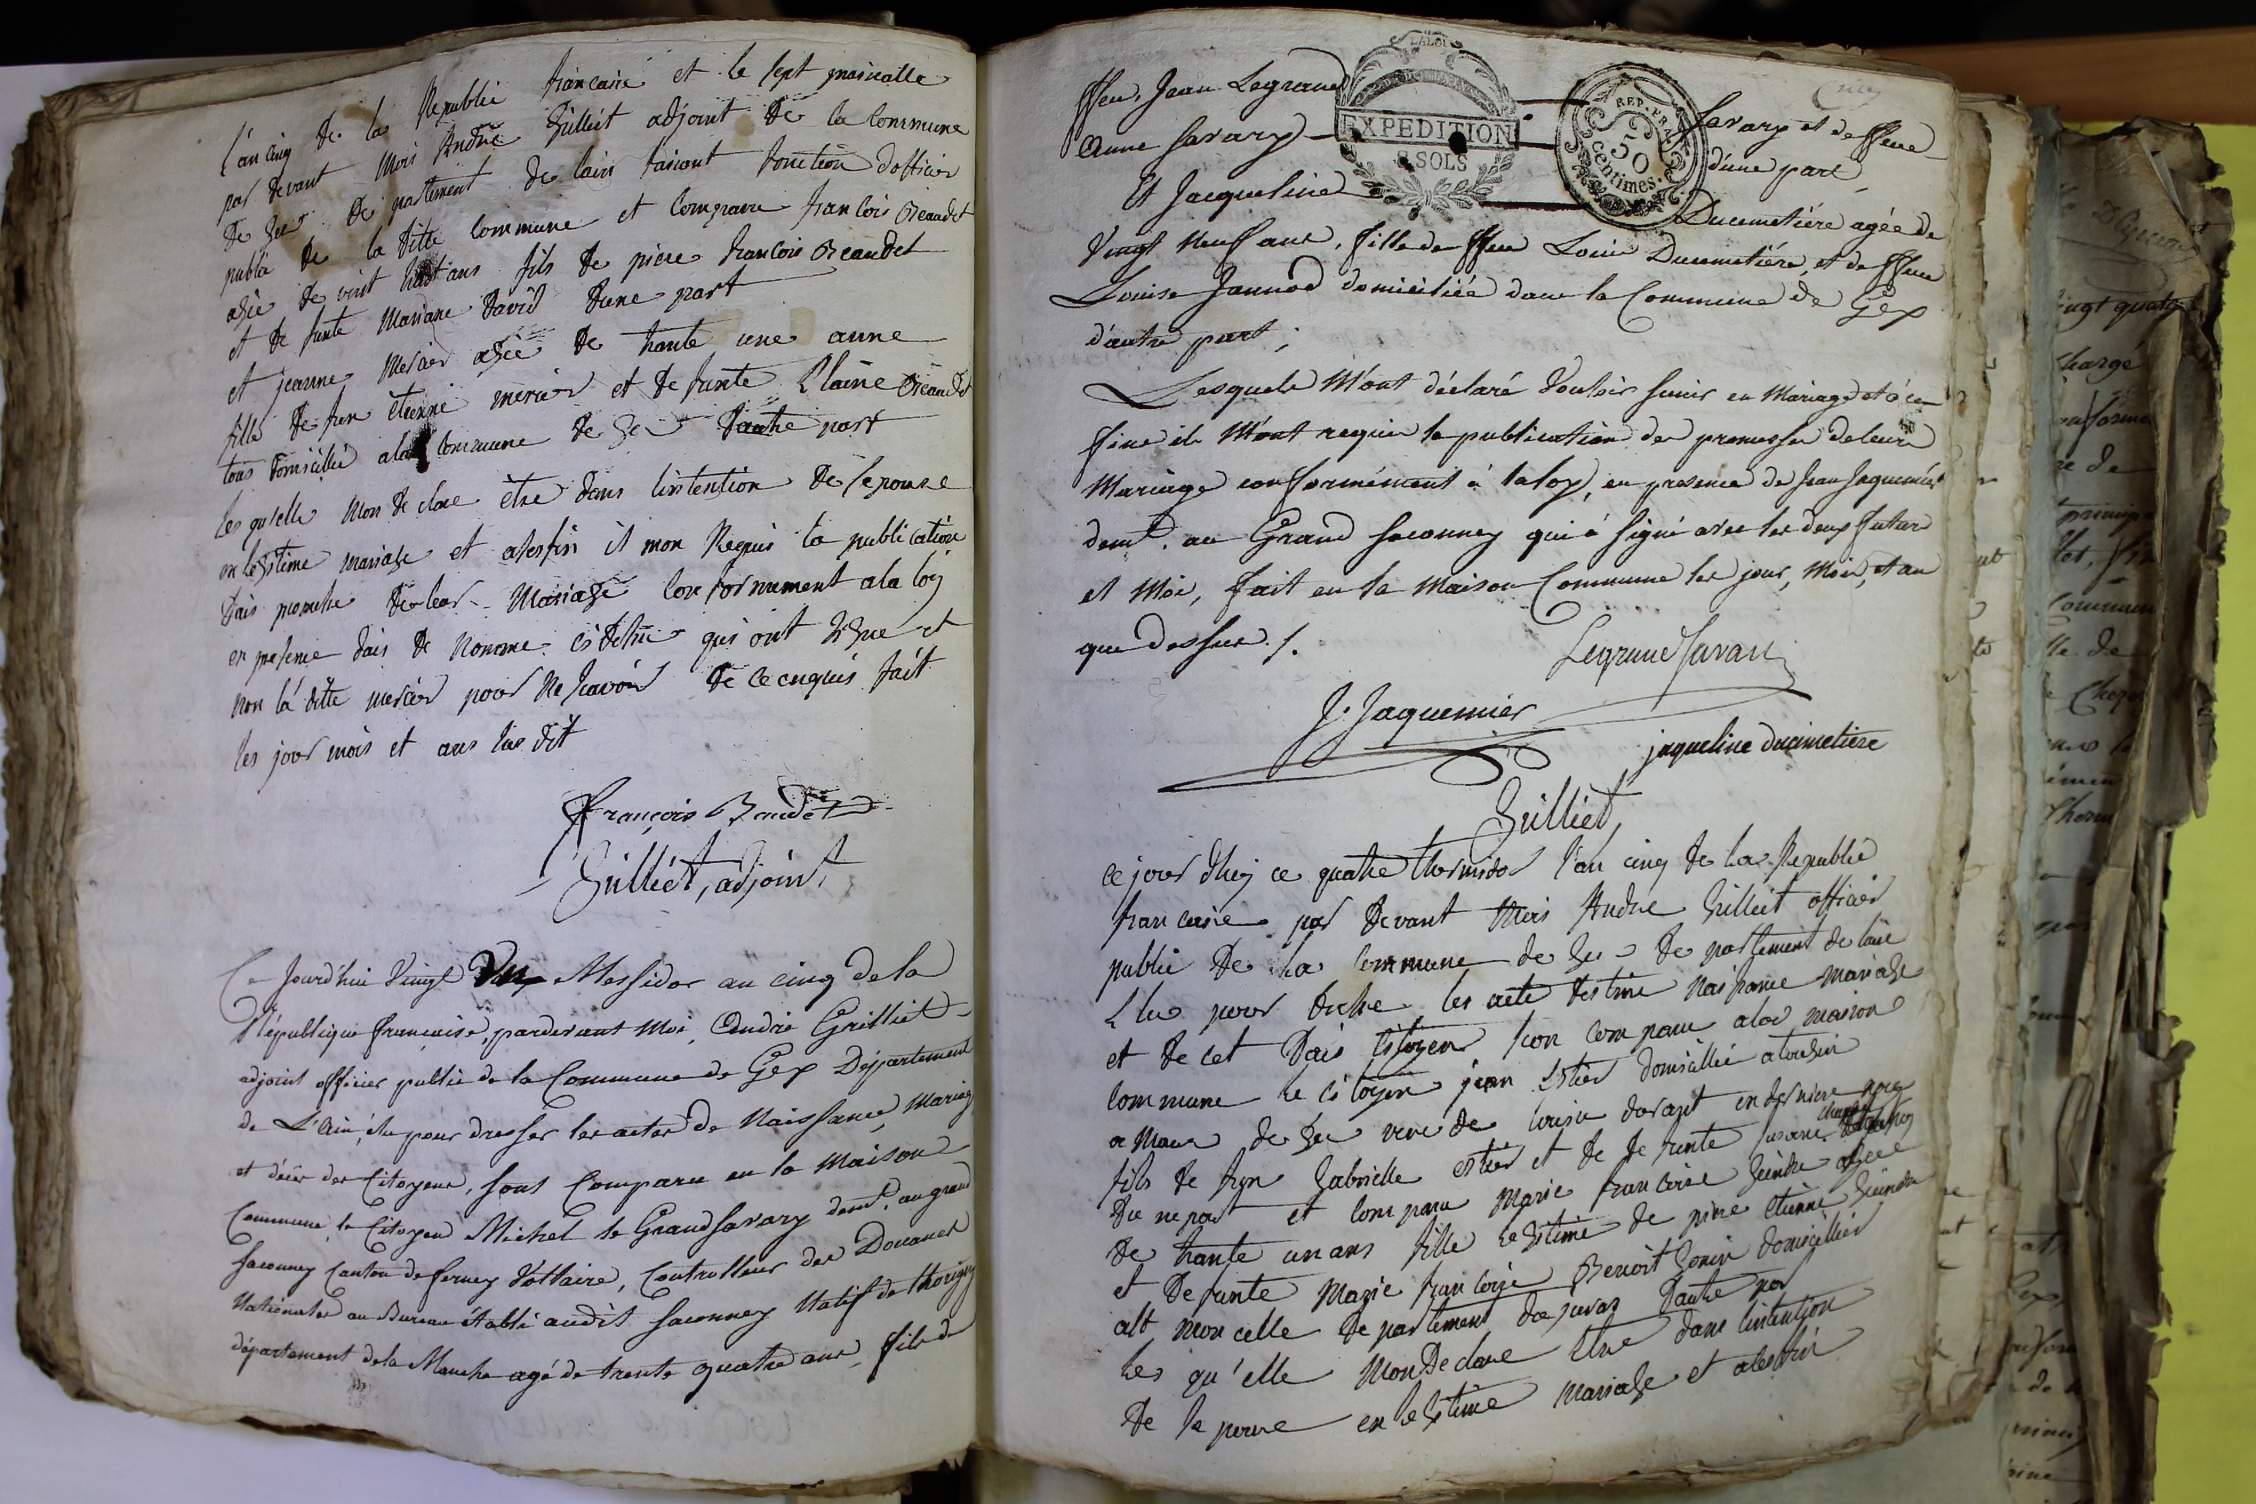 l'an cinq de la Republie francaise et le sept
par devant Mois André Grilliet adjoint de la Commune
de Gex de partement de lain faisant fonction dofficier
public de la ditte commune et compraru francois Beaudet
agée de vint huit ans fils de piere francois Beaudet
et de funte Mariane david dune part
et jeanne Mercier agée de trante une anne
fille de feu étienne mercier et de funte Beaudet
tous domicillié a la commune de Gex dautre part
les qu'elle mon de clare être dans lintention de se pouse
en legitime mariage et alesfin il mon Requis la publication
dais promche de leur Mariage conformement a la loy
en presence dais de nomme qui ont signe et
non la ditte mercier pour ne scavoir de ce enquis fait
les jour mois et ans sus dit
François Baudet
Grilliet, adjoint
Ce Jourd'hui Vingt Messidor an cinq de la
République française, pardevant Moi, André Grilliet
adjoint officier public de la Commune de Gex Département
de L'Ain, élu pour dresser les actes de Naissance, Mariag
et décès des Citoyens, sont Comparu en la Maison
Commune, le Citoyen Michel le Grand Savary demt. au grand
Saconney Canton de ferney Voltaire, Controlleur des Douanes
Nationales au Bureau établi audit Saconney Natif de thorigny
département de la Manche agé de trente quatre ans, fils de
ffeu, Jean Legrand Savary et de ffeue
Anne Savary d'une part
LA LOI
EXPEDITION
8 SOLS
REP. FRA.
50
centimes.
Et Jacqueline Ducemetiére agée de
Vingt neuf ans, fille de ffeu Louis Ducemetiére, et de ffeue
Louise Jannod domiciliée dans la Commune de Gex
d'autre part;
Lesquels M'ont déclaré Vouloir sunir en Mariage et à ces
fins ils M'ont requis la publication des promesses de leurs
Mariage conformément à la loy, en presence de Jean Jaquemier
demt. au Grand Saconney qui à signé avec les deux futurs
et Moi, fait en la Maison Commune les jour, Mois, et an
que dessus ./.
Legrand Savary
J. Jaquemier
jaqueline ducimetiere
Grilliet
ce jour dhuy ce quatre thermidor l'an cinq de la Republie
francaise par devant Mois Andre Grilliet officier
public de la commune de Gex de partement de lain
Elus pour dresse les acte destine Naissance mariage
et de cet Dais Citoyens son compraru alad maison
commune le citoyen jean Estier domicillié
a Maux de Gex veve de louise dorant en derniere
fils de feu Gabrielle estier et de de funte susane
du ne part et compraru Marie francoise
de trante un ans fille legitime de piere etienne
et de funte Marie francoise Benoit Gonin domicillier
alt, mon celle de partement du juras dautre par
les qu'elle mon De clare être dans lintention
de se pouse en legitime mariage et alesfin